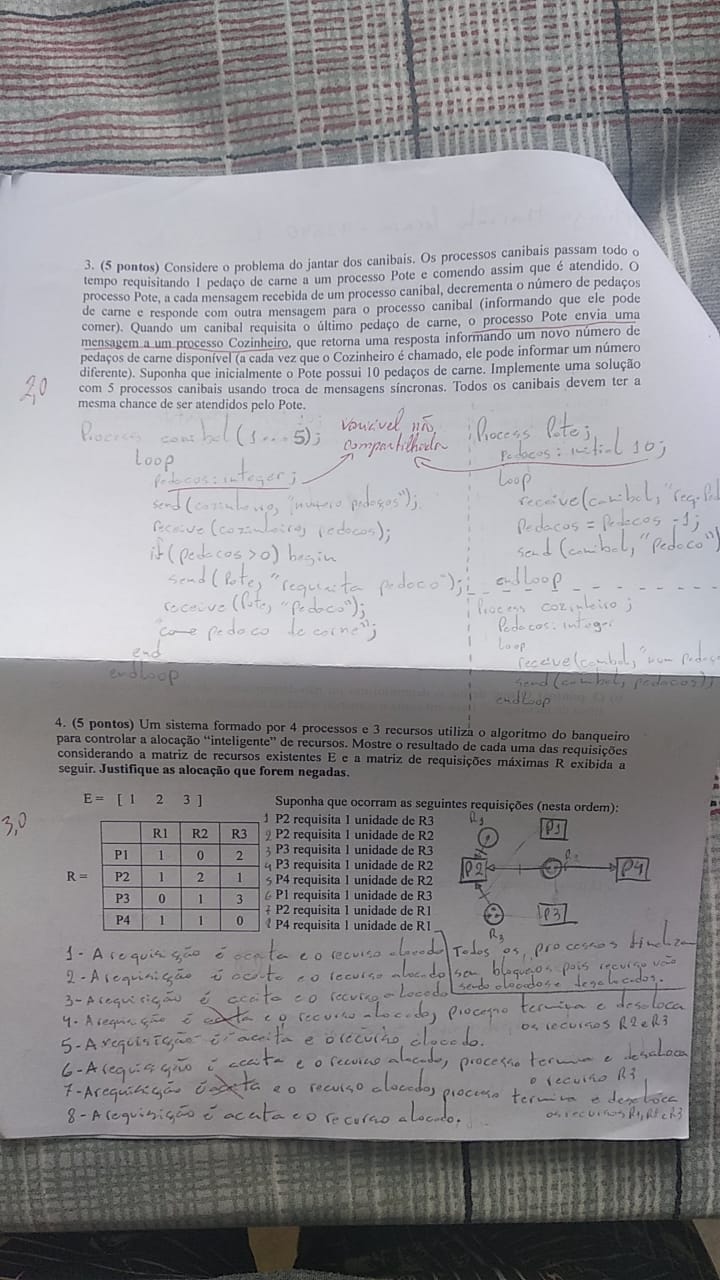 3. (5 pontos) Considere o problema do jantar dos canibais. Os processos canibais passam todo o
tempo requisitando 1 pedaço de carne a um processo Pote e comendo assim que é atendido. O
processo Pote, a cada mensagem recebida de um processo canibal, decrementa o número de pedaços
de carne e responde com outra mensagem para o processo canibal (informando que ele pode
comer). Quando um canibal requisita o último pedaço de carne, o processo Pote envia uma
mensagem a um processo Cozinheiro, que retorna uma resposta informando um novo número de
pedaços de carne disponível (a cada vez que o Cozinheiro é chamado, ele pode informar um número
diferente). Suponha que inicialmente o Pote possui 10 pedaços de carne. Implemente uma solução
com 5 processos canibais usando troca de mensagens síncronas. Todos os canibais devem ter a
mesma chance de ser atendidos pelo Pote.
2,0
Process canibal (1...5);
loop
pedacos: integer;
send (cozinheiro, "numero pedaços");
receive (cozinheiro, pedacos);
if (pedacos > 0) begin
send (Pote, "requisita pedaco");
receive (Pote, "Pedaco");
"come pedaco de carne";
end
endloop
variável não
compartilhada
Process Pote;
Pedacos: initial 10;
loop
receive (canibal, "req. Ped
Pedacos = Pedacos - 1;
send (canibal, "pedaco")
endloop
Process cozinheiro;
Pedacos: integer
loop
receive (canibal, "num pedaço
send (canibal, pedacos);
endloop
4. (5 pontos) Um sistema formado por 4 processos e 3 recursos utiliza o algoritmo do banqueiro
para controlar a alocação “inteligente” de recursos. Mostre o resultado de cada uma das requisições
considerando a matriz de recursos existentes E e a matriz de requisições máximas R exibida a
seguir. Justifique as alocação que forem negadas.
3,0
E = [ 1 2 3 ]
R1 R2 R3
P1 1 0 2
R = P2 1 2 1
P3 0 1 3
P4 1 1 0
Suponha que ocorram as seguintes requisições (nesta ordem):
1 P2 requisita 1 unidade de R3
2 P2 requisita 1 unidade de R2
3 P3 requisita 1 unidade de R3
4 P3 requisita 1 unidade de R2
5 P4 requisita 1 unidade de R2
6 P1 requisita 1 unidade de R3
7 P2 requisita 1 unidade de R1
8 P4 requisita 1 unidade de R1
P1
P2
P4
P3
R3
1 - A requisição é aceita e o recurso alocado
2 - A requisição é aceita e o recurso alocado
3 - A requisição é aceita e o recurso alocado
Todos os processos finaliza
sem bloqueios pois recurso vão
sendo alocados e desalocados.
4 - A requisição é aceita e o recurso alocado, processo termina e desaloca
os recursos R2 e R3
5 - A requisição é aceita e o recurso alocado.
6 - A requisição é aceita e o recurso alocado, processo termina e desaloca
o recurso R3
7 - A requisição é aceita e o recurso alocado, processo termina e desaloca
os recursos R1, R2 e R3
8 - A requisição é aceita e o recurso alocado.